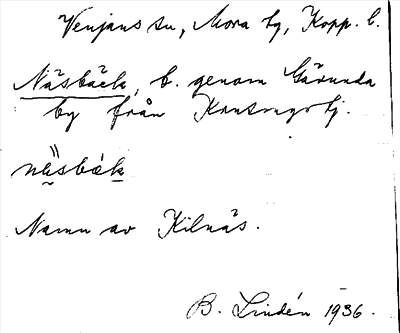 Venjans sn, Mora tg, Kopp. l.
Näsbäck, b. genom Gärunda
by från Krutmgstj.
nä̀sbäk
Namn av Kilnäs.
B. Lindén 1936.